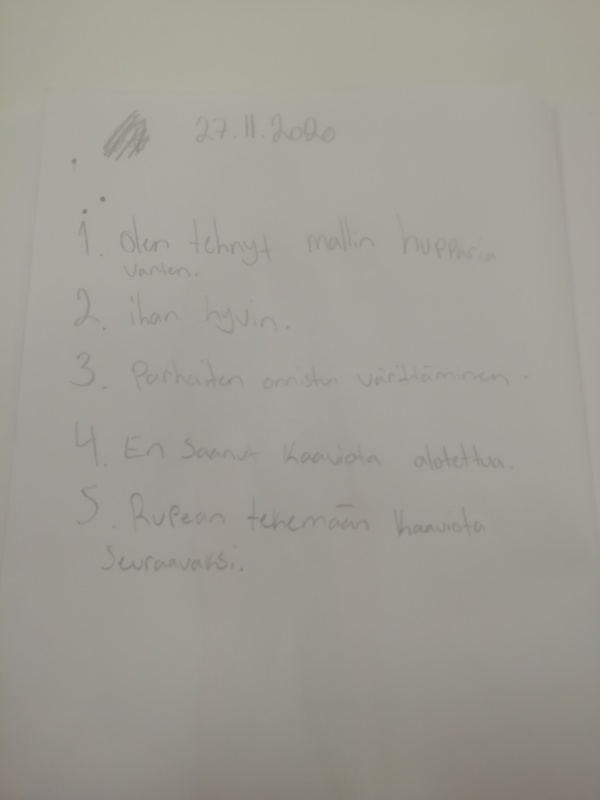 27.11.2020
1. Olen tehnyt mallin hupparia
varten.
2. ihan hyvin.
3. Parhaiten onnistui värittäminen.
4. En saanut kaaviota alotettua.
5. Rupean tekemään kaaviota
seuraavaksi.